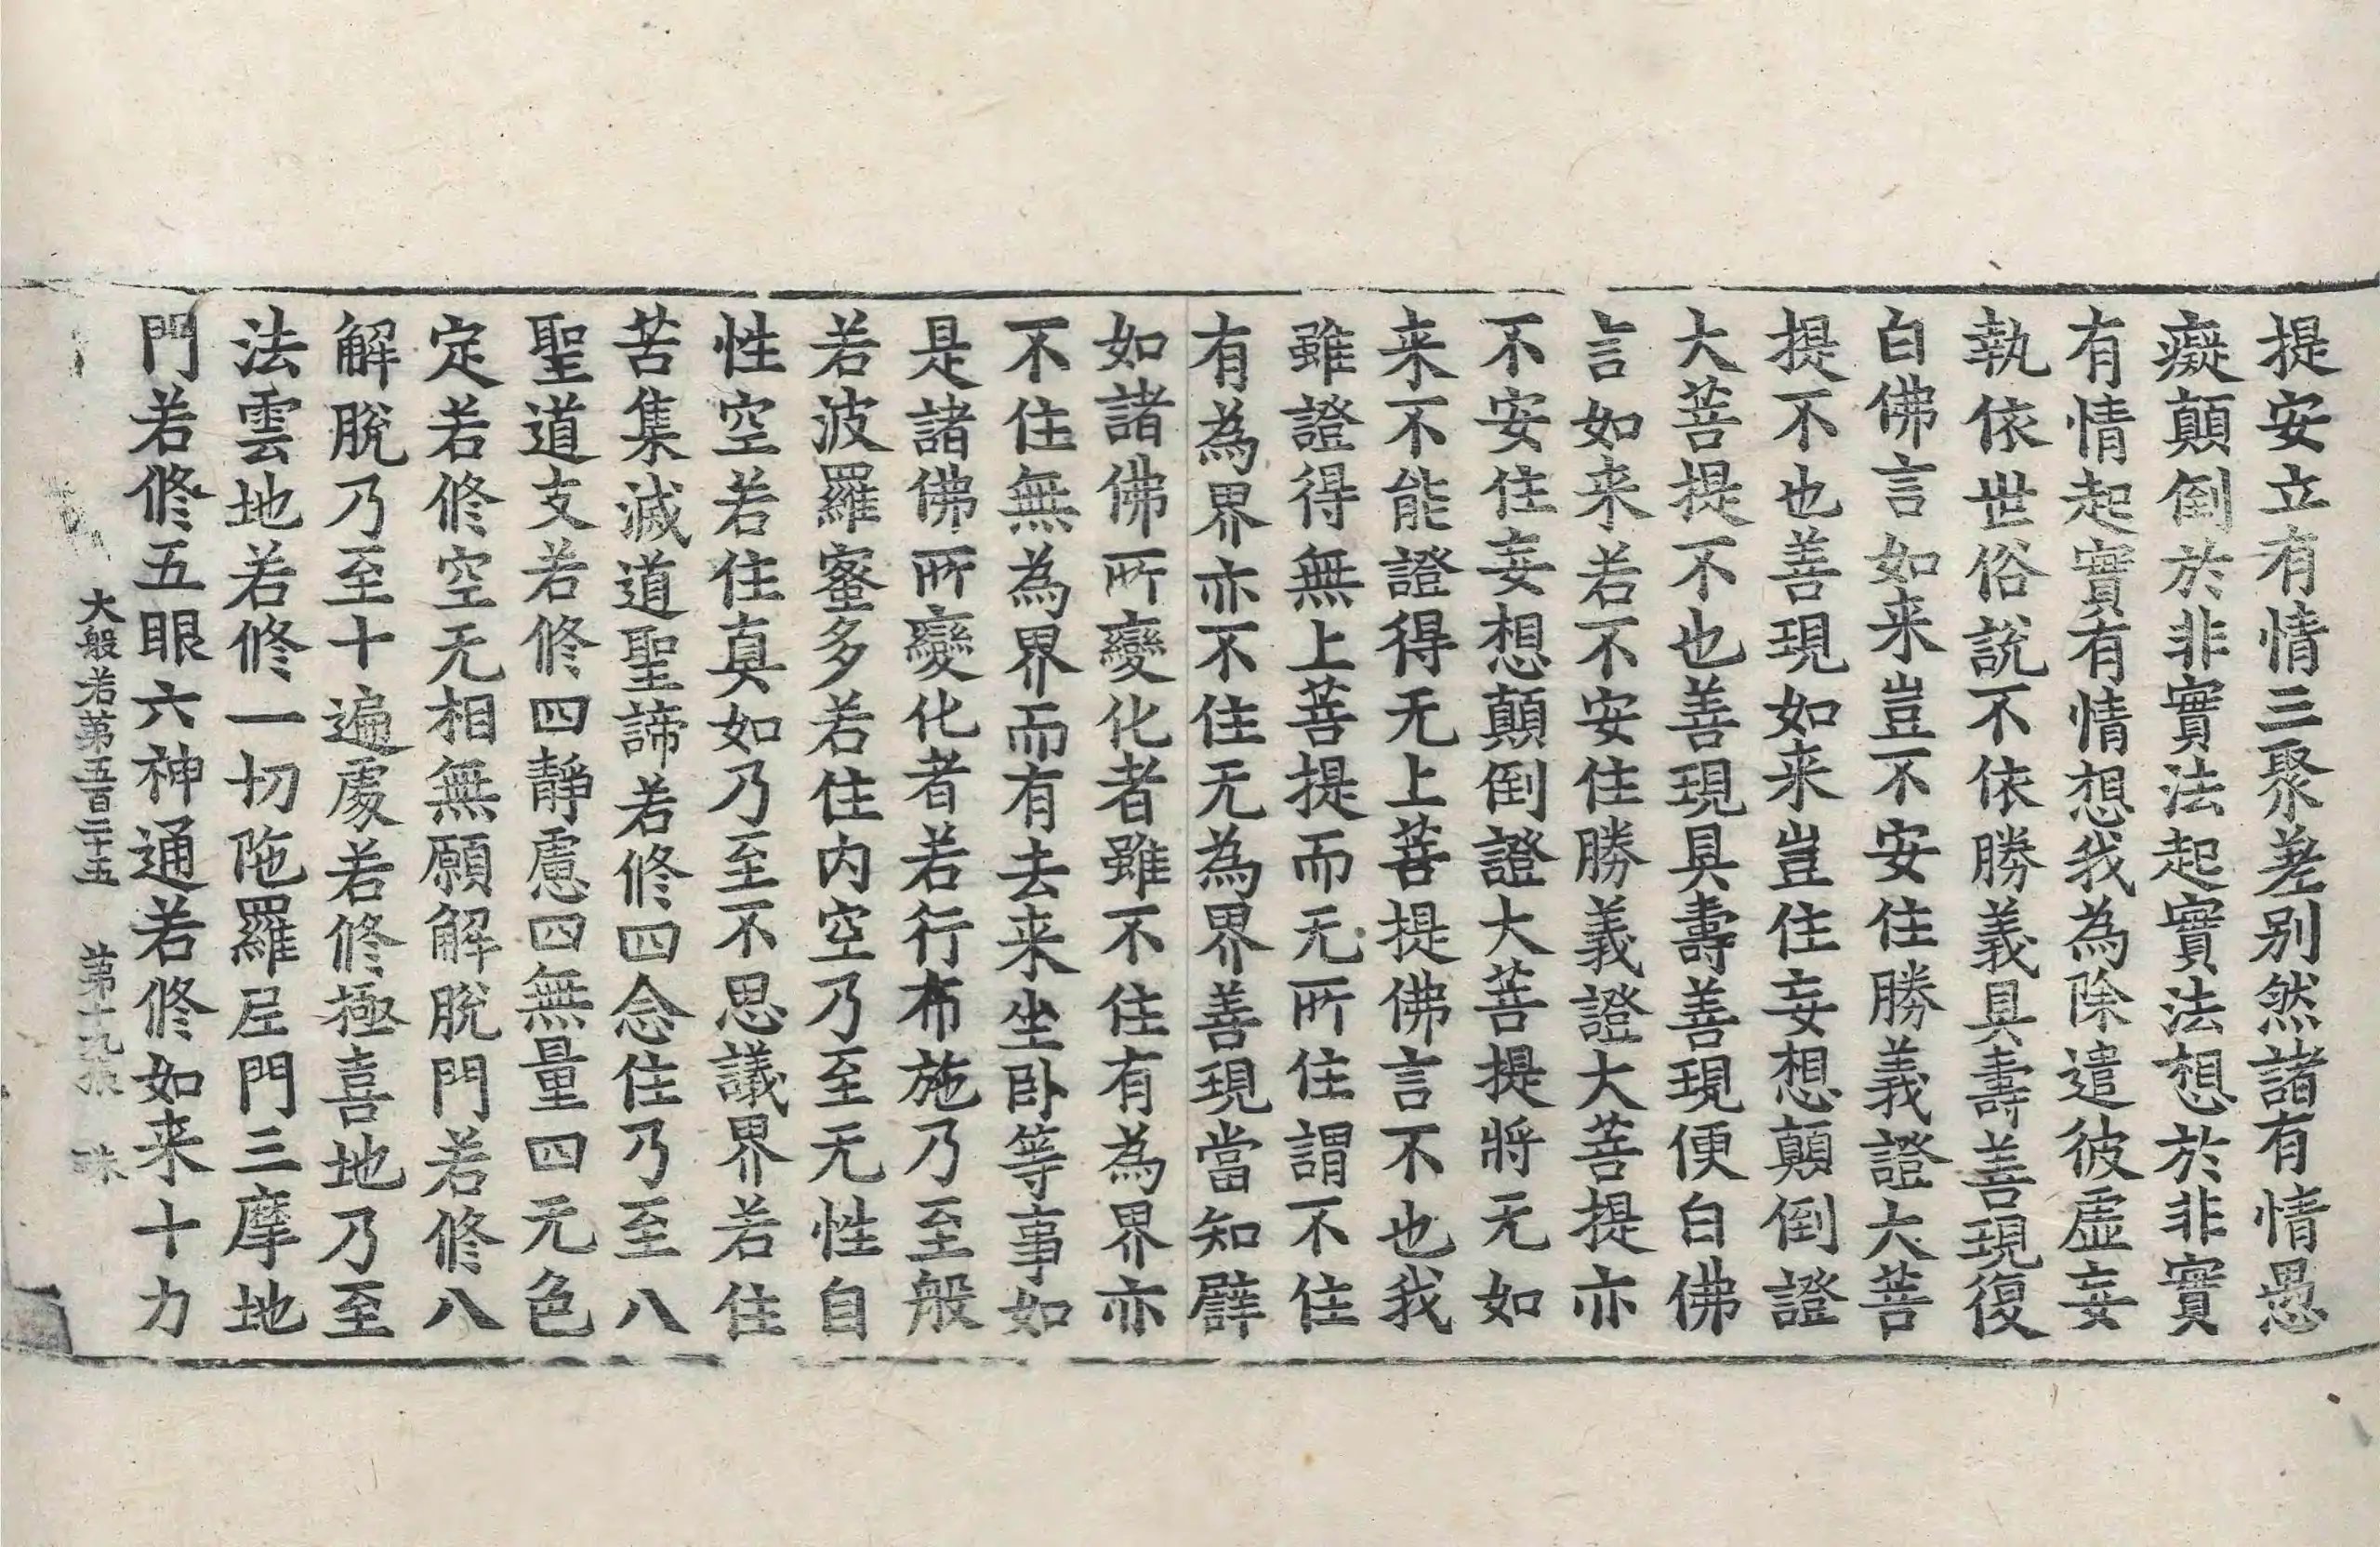 提安立有情三聚差別然諸有情愚
癡顛倒於非實法起實法想於非實
有情起實有情想我為除遣彼虛妄
執依世俗說不依勝義具壽善現復
白佛言如来豈不安住勝義證大菩
提不也善現如来豈住妄想顛倒證
大菩提不也善現具壽善現便白佛
言如来若不安住勝義證大菩提亦
不安住妄想顛倒證大菩提將无如
来不能證得无上菩提佛言不也我
雖證得無上菩提而无所住謂不住
有為界亦不住无為界善現當知譬
如諸佛所變化者雖不住有為界亦
不住無為界而有去来坐卧等事如
是諸佛所變化者若行布施乃至般
若波羅蜜多若住內空乃至无性自
性空若住真如乃至不思議界若住
苦集滅道聖諦若修四念住乃至八
聖道支若修四靜慮四無量四无色
定若修空无相無願解脫門若修八
解脫乃至十遍處若修極喜地乃至
法雲地若修一切陁羅尼門三摩地
門若修五眼六神通若修如来十力
大般若第五百二十五 第十九張